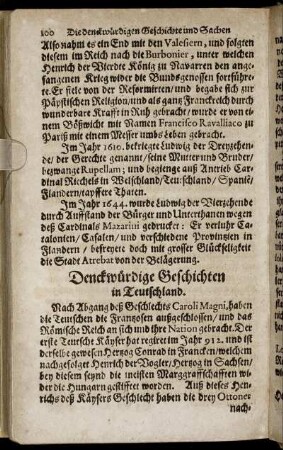 100 Die denckwürdigen Geschichte und Sachen
Also nahm es ein End mit den Valesiern, und folgten
diesem im Reich nach die Burbonier, unter welchen
Henrich der Vierdte König zu Navarren den ange-
fangenen Krieg wider die Bundsgenossen fortführe-
te. Er fiele von der Reformirten/ und begabe sich zur
Päpstischen Religion/ und als gantz Franckreich durch
wunderbare Krafft in Ruh gebracht/ wurde er von
einem Bößwicht mit Namen Francisco Ravalliaco zu
Pariß mit einem Messer umbs Leben gebracht.
Im Jahr 1610. bekriegte Ludwig der Dreyzehen-
de/ der Gerechte genannt/ seine Mutter und Bruder/
bezwange Rupellam; und begienge auß Antrieb Car-
dinal Richels in Welschland/ Teutschland/ Spanië/
Flandern/ tappfere Thaten.
Im Jahr 1644. wurde Ludwig der Vierzehende
durch Auffstand der Bürger und Unterthanen wegen
deß Cardinals Mazarini gedrucket: Er verluhr Ca-
talonien/ Casalen/ und verschiedene Provintzien in
Flandern/ befreyete doch mit grosser Glückseligkeit
die Stadt Atrebat von der Belägerung.
Denckwürdige Geschichten
in Teutschland.
Nach Abgang deß Geschlechts Caroli Magni, haben
die Teutschen die Frantzosen außgeschlossen/ und das
Römische Reich an sich und ihre Nation gebracht. Der
erste Teutsche Käyser hat regiret im Jahr 912. und ist
derselbe gewesen Hertzog Conrad in Francken/ welchem
nachgefolget Henrich der Vogler/ Hertzog in Sachsen/
bey diesem seynd die meisten Marggraffschafften wi-
der die Hungarn gestifftet worden. Auß dieses Hen-
richs deß Käysers Geschlecht haben die drey Ottones
nach-